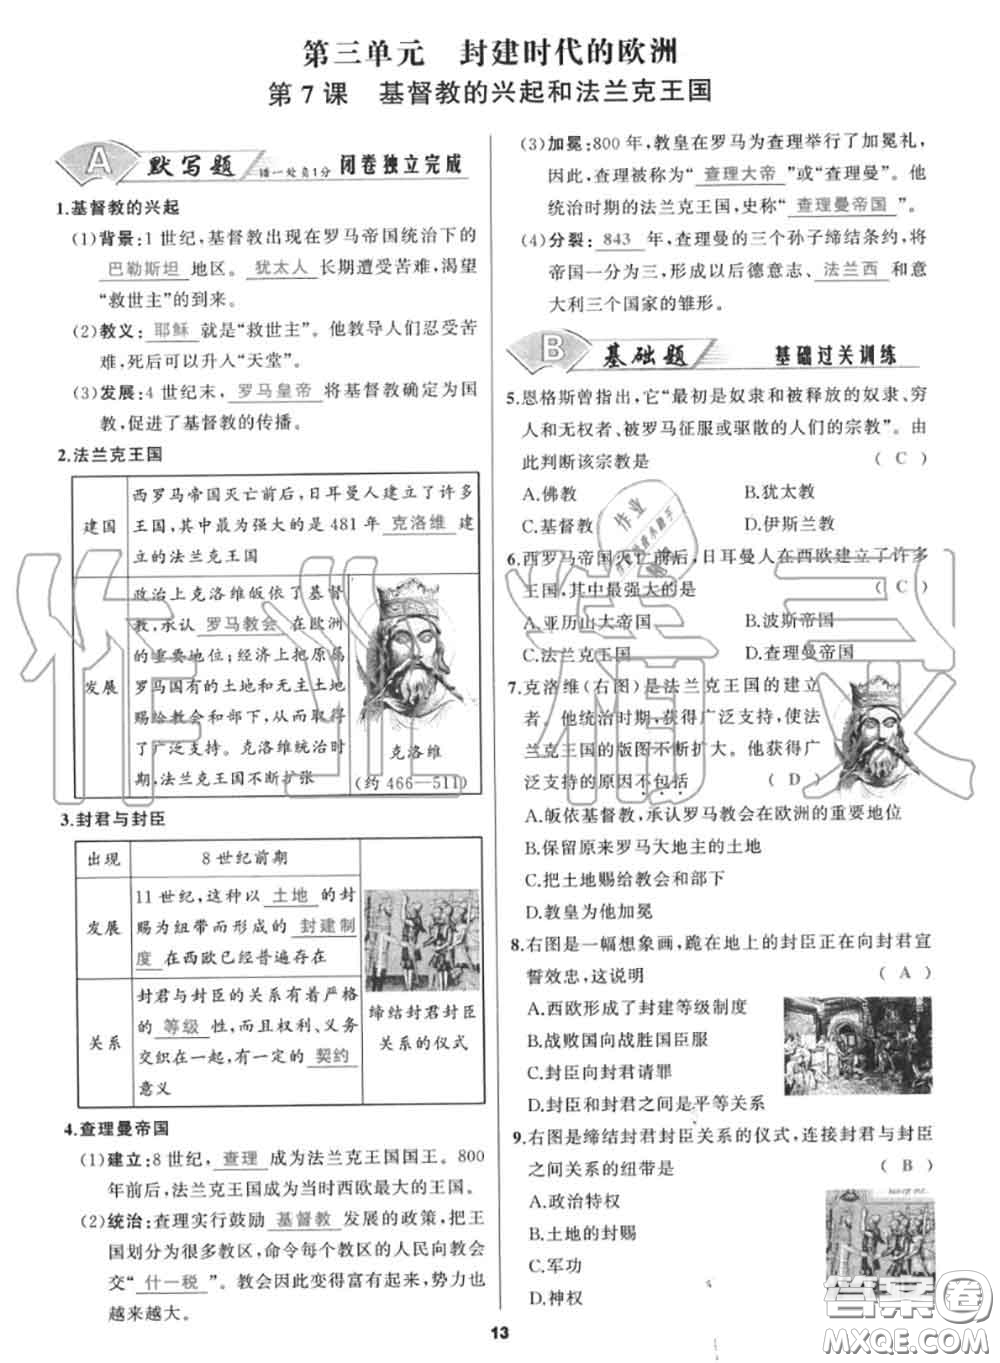 第三单元 封建时代的欧洲
第7课 基督教的兴起和法兰克王国
A 默写题 错一处负1分 闭卷独立完成
1.基督教的兴起
(1)背景:1世纪,基督教出现在罗马帝国统治下的
巴勒斯坦 地区。犹太人 长期遭受苦难,渴望
“救世主”的到来。
(2)教义:耶稣 就是“救世主”。他教导人们忍受苦
难,死后可以升人“天堂”。
(3)发展:4世纪末,罗马皇帝 将基督教确定为国
教,促进了基督教的传播。
2.法兰克王国
建国
西罗马帝国灭亡前后,日耳曼人建立了许多
王国,其中最为强大的是481年 克洛维 建
立的法兰克王国
发展
政治上克洛维皈依了基督
教,承认 罗马教会 在欧洲
的重要地位;经济上把原属
罗马国有的土地和无主土地
赐给教会和部下,取得
了广泛支持。克洛维统治时
期,法兰克王国不断扩张
克洛维
(约466—511)
3.封君与封臣
出现 8世纪前期
发展
11世纪,这种以 土地 的封
赐为纽带而形成的 封建制
度 在西欧已经普遍存在
关系
封君与封臣的关系有着严格
的 等级 性,而且权利、义务
交织在一起,有一定的 契约
意义
缔结封君封臣
关系的仪式
4.查理曼帝国
(1)建立:8世纪,查理 成为法兰克王国国王。800
年前后,法兰克王国成为当时西欧最大的王国。
(2)统治:查理实行鼓励 基督教 发展的政策,把王
国划分为很多教区,命令每个教区的人民向教会
交“什一税”。教会因此变得富有起来,势力也
越来越大。
(3)加冕:800年,教皇在罗马为查理举行了加冕礼,
因此,查理被称为“查理大帝”或“查理曼”。他
统治时期的法兰克王国,史称“查理曼帝国”。
(4)分裂:843 年,查理曼的三个孙子缔结条约,将
帝国一分为三,形成以后德意志、法兰西 和意
大利三个国家的雏形。
B 基础题 基础过关训练
5.恩格斯曾指出,它“最初是奴隶和被释放的奴隶、穷
人和无权者、被罗马征服或驱散的人们的宗教”。由
此判断该宗教是 (C)
A.佛教 B.犹太教
C.基督教 D.伊斯兰教
6.西罗马帝国灭亡前后,日耳曼人在西欧建立了许多
王国,其中最强大的是 (C)
A.亚历山大帝国 B.波斯帝国
C.法兰克王国 D.查理曼帝国
7.克洛维(右图)是法兰克王国的建立
者。他统治时期,获得广泛支持,使法
兰克王国的版图不断扩大。他获得广
泛支持的原因不包括 (D)
A.皈依基督教,承认罗马教会在欧洲的重要地位
B.保留原来罗马大地主的土地
C.把土地赐给教会和部下
D.教皇为他加冕
8.右图是一幅想象画,跪在地上的封臣正在向封君宣
誓效忠,这说明 (A)
A.西欧形成了封建等级制度
B.战败国向战胜国臣服
C.封臣向封君请罪
D.封臣和封君之间是平等关系
9.右图是缔结封君封臣关系的仪式,连接封君与封臣
之间关系的纽带是 (B)
A.政治特权
B.土地的封赐
C.军功
D.神权
13
作业精灵
答案圈
MXQE.COM